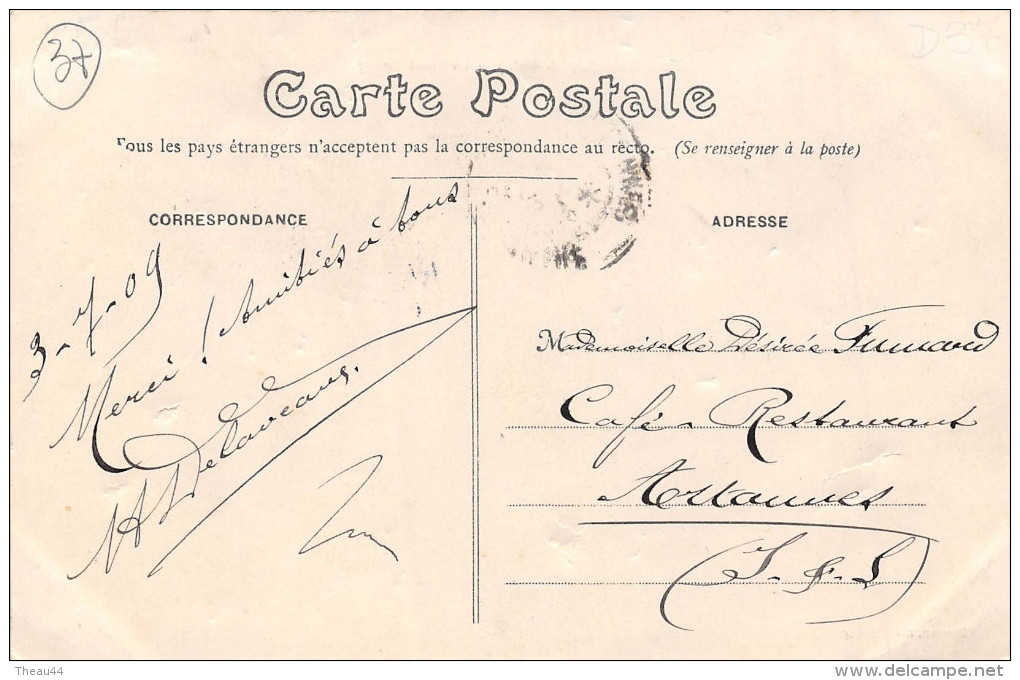 37
D37
Carte Postale
Tous les pays étrangers n'acceptent pas la correspondance au recto. (Se renseigner à la poste)
CORRESPONDANCE
3-7-09
Merci ! Amitiés à tous
Delaveaux.
ADRESSE
Mademoiselle Désirée Fumard
Café-Restaurant
Artannes
(I-&-L)
Theau44
www.delcampe.net